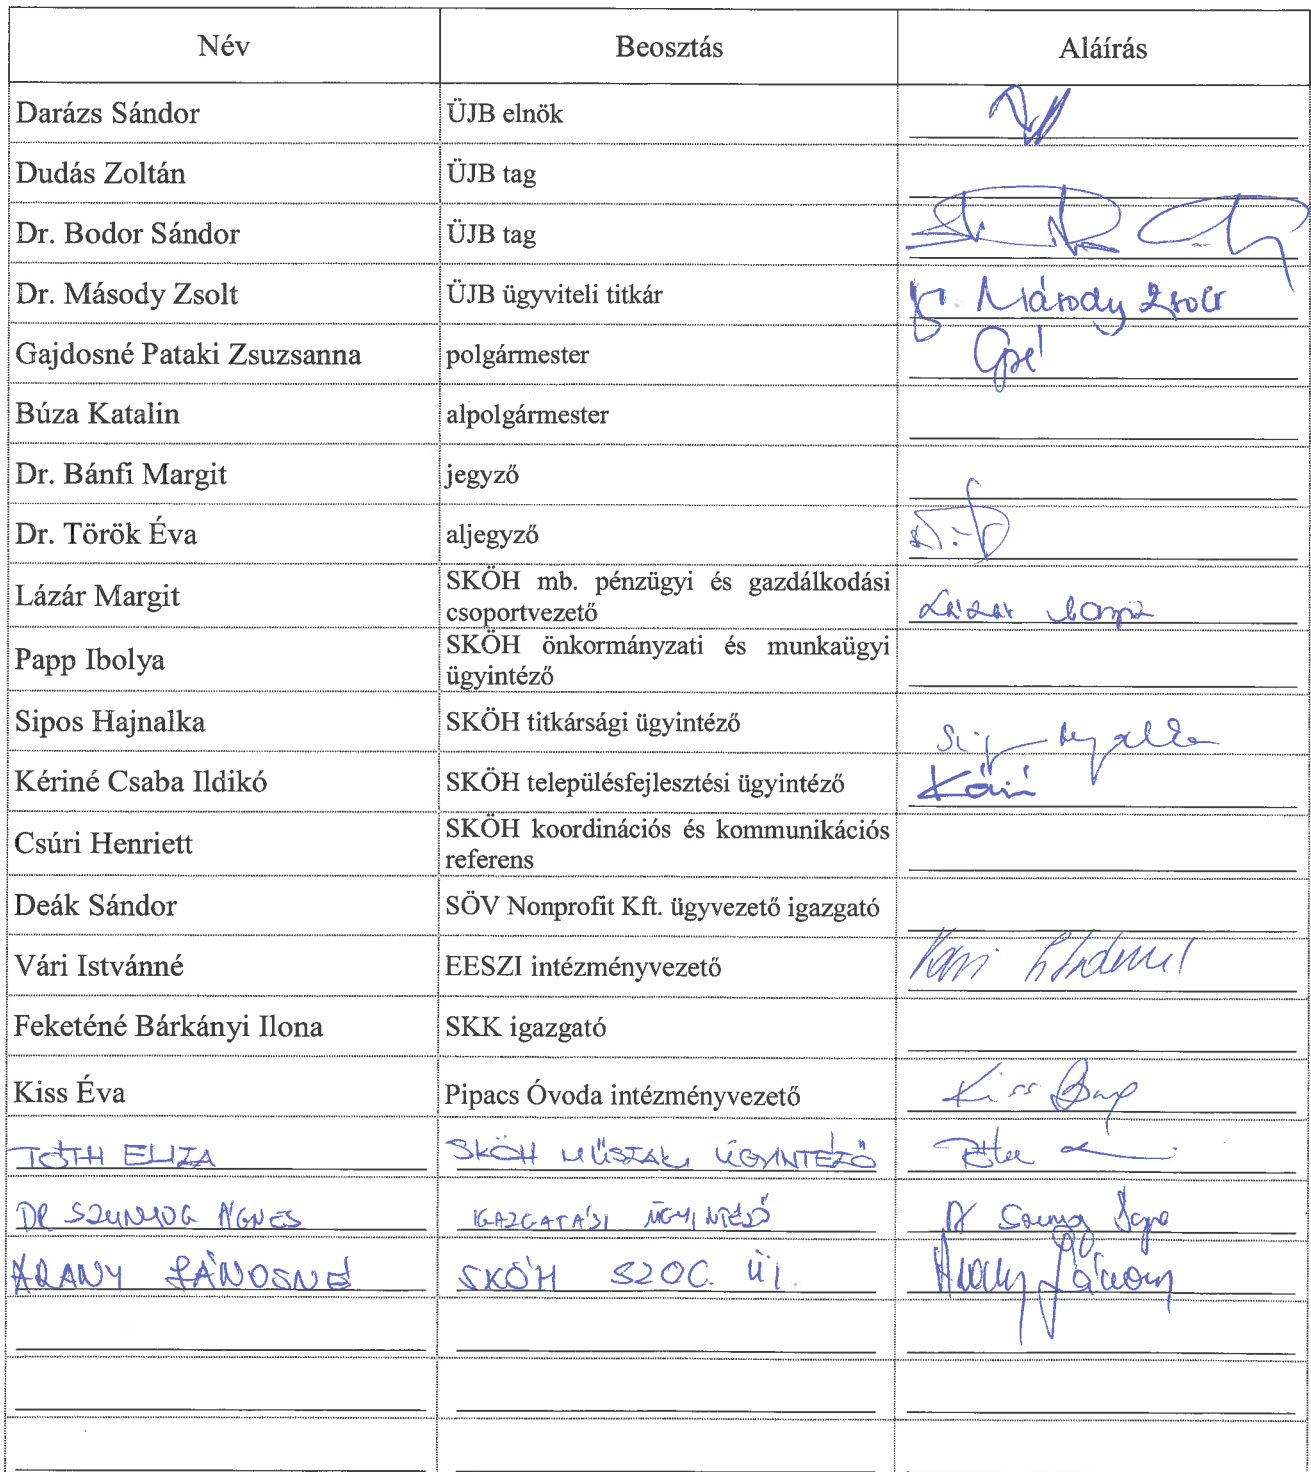 Név Beosztás Aláírás
Darázs Sándor ÜJB elnök
Dudás Zoltán ÜJB tag
Dr. Bodor Sándor ÜJB tag
Dr. Másody Zsolt ÜJB ügyviteli titkár Másody Zsolt
Gajdosné Pataki Zsuzsanna polgármester
Búza Katalin alpolgármester
Dr. Bánfi Margit jegyző
Dr. Török Éva aljegyző
Lázár Margit SKÖH mb. pénzügyi és gazdálkodási
csoportvezető Lázár Margit
Papp Ibolya SKÖH önkormányzati és munkaügyi
ügyintéző
Sipos Hajnalka SKÖH titkársági ügyintéző
Kériné Csaba Ildikó SKÖH településfejlesztési ügyintéző
Csúri Henriett SKÖH koordinációs és kommunikációs
referens
Deák Sándor SÖV Nonprofit Kft. ügyvezető igazgató
Vári Istvánné EESZI intézményvezető
Feketéné Bárkányi Ilona SKK igazgató
Kiss Éva Pipacs Óvoda intézményvezető Kiss
TÓTH ELIZA SKÖH MŰSZAKI ÜGYINTÉZŐ
DR SZUNYOG ÁGNES IGAZGATÁSI ÜGYINTÉZŐ
ARANY JÁNOSNÉ SKÖH SZOC. ÜI.